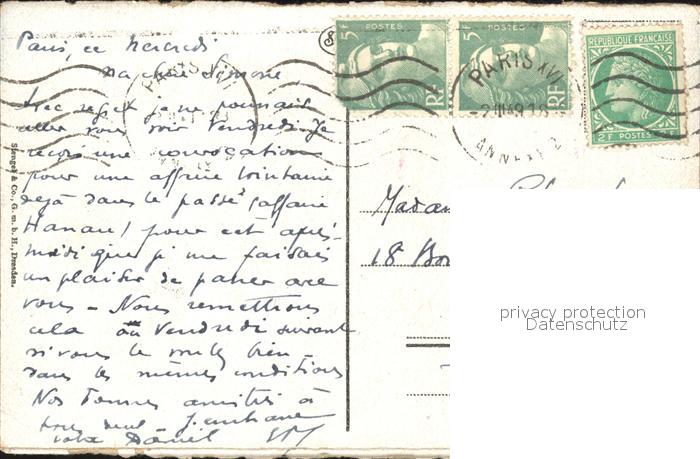 Paris, ce Mercredi
Ma chère Simone,
Avec regret je ne pourrais
aller vous voir Vendredi. Je
reçois une convocation
pour une affaire lointaine
déjà dans le passé (affaire
Hanau) pour cet après-
midi que je me faisais
un plaisir de passer avec
vous – Nous remettrons
cela au Vendredi suivant
si vous le voulez bien –
dans les mêmes conditions
Nos bonnes amitiés à
tous deux –
votre Daniel
Stengel & Co., G. m. b. H., Dresden.
5F POSTES RF
5F POSTES RF
REPUBLIQUE FRANÇAISE
2F POSTES
PARIS XVI
PARIS XVI
ANNEXE 2
Madam
18 Bou
privacy protection
Datenschutz